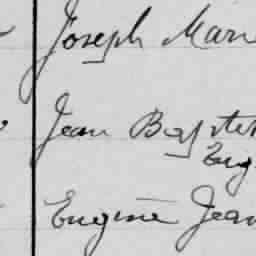 Joseph Marie
Jean Baptiste
Eug
Eugène Jean